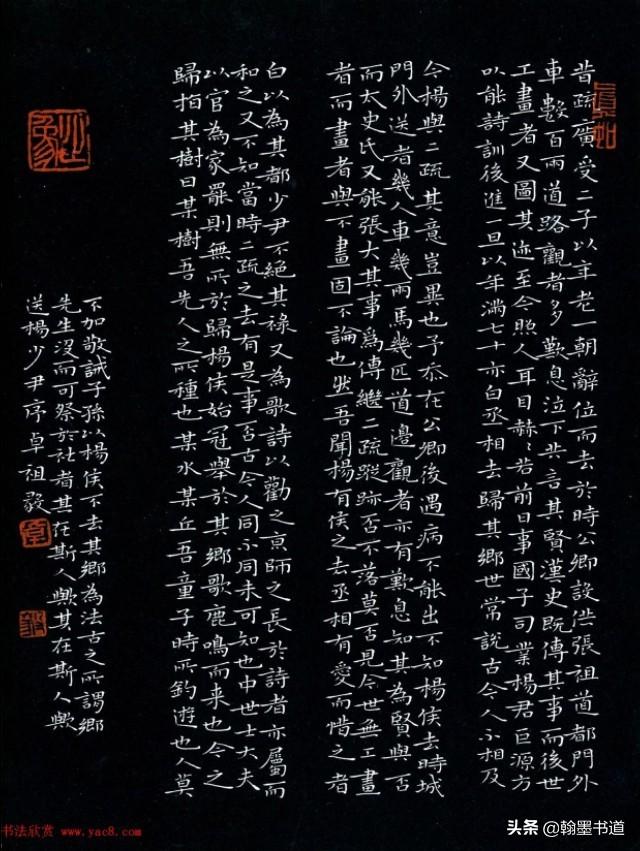 昔疏廣受二子以年老一朝辭位而去於時公卿設供張祖道都門外
車數百兩道路觀者多歎息泣下共言其賢漢史既傳其事而後世
工畫者又圖其迹至今照人耳目赫赫若前日事國子司業楊君巨源方
以能詩訓後進一旦以年滿七十亦白丞相去歸其鄉世常說古今人不相及
今楊與二疏其意豈異也予忝在公卿後遇病不能出不知楊侯去時城
門外送者幾人車幾兩馬幾匹道邊觀者亦有歎息知其為賢與否
而太史氏又能張大其事為傳繼二疏蹤跡否不落莫否見今世無工畫
者而畫者與不畫固不論也然吾聞楊有侯之去丞相有愛而惜之者
白以為其都少尹不絕其祿又為歌詩以勸之京師之長於詩者亦屬而
和之又不知當時二疏之去有是事否古今人同不同未可知也中世士大夫
以官為家罷則無所於歸楊侯始冠舉於其鄉歌鹿鳴而來也今之
歸指其樹曰某樹吾先人之所種也某水某丘吾童子時所釣遊也人莫
不加敬誡子孫以楊侯不去其鄉為法古之所謂鄉
先生沒而可祭於社者其在斯人歟其在斯人歟
送楊少尹序卓祖毅
真如
书法欣赏 www.yac8.com
头条 @翰墨书道